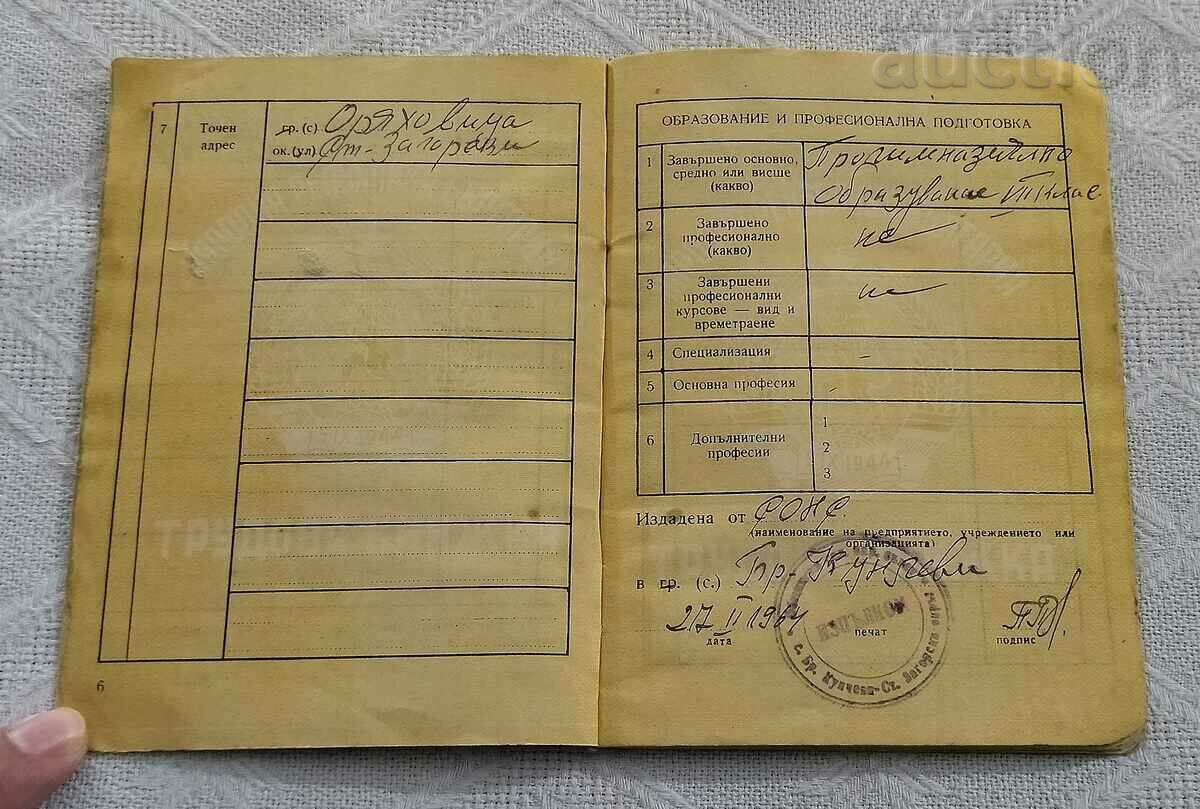 auction
7
Точен
адрес
гр. (с) Оряховица
ок. (ул) Ст-Загорски
6
ОБРАЗОВАНИЕ И ПРОФЕСИОНАЛНА ПОДГОТОВКА
1 Завършено основно,
средно или висше
(какво)
Прогимназиално
Образувание III клас
2 Завършено
професионално
(какво)
не
3 Завършени
професионални
курсове — вид и
времетраене
не
4 Специализация -
5 Основна професия -
6 Допълнителни
професии
1
2
3
Издадена от СОНС
(наименование на предприятието, учреждението или
организацията)
в гр. (с.) Бр. Кунчеви
27 II 1964
дата
печат
подпис
с. Бр. Кунчеви-Ст. Загорска
1944